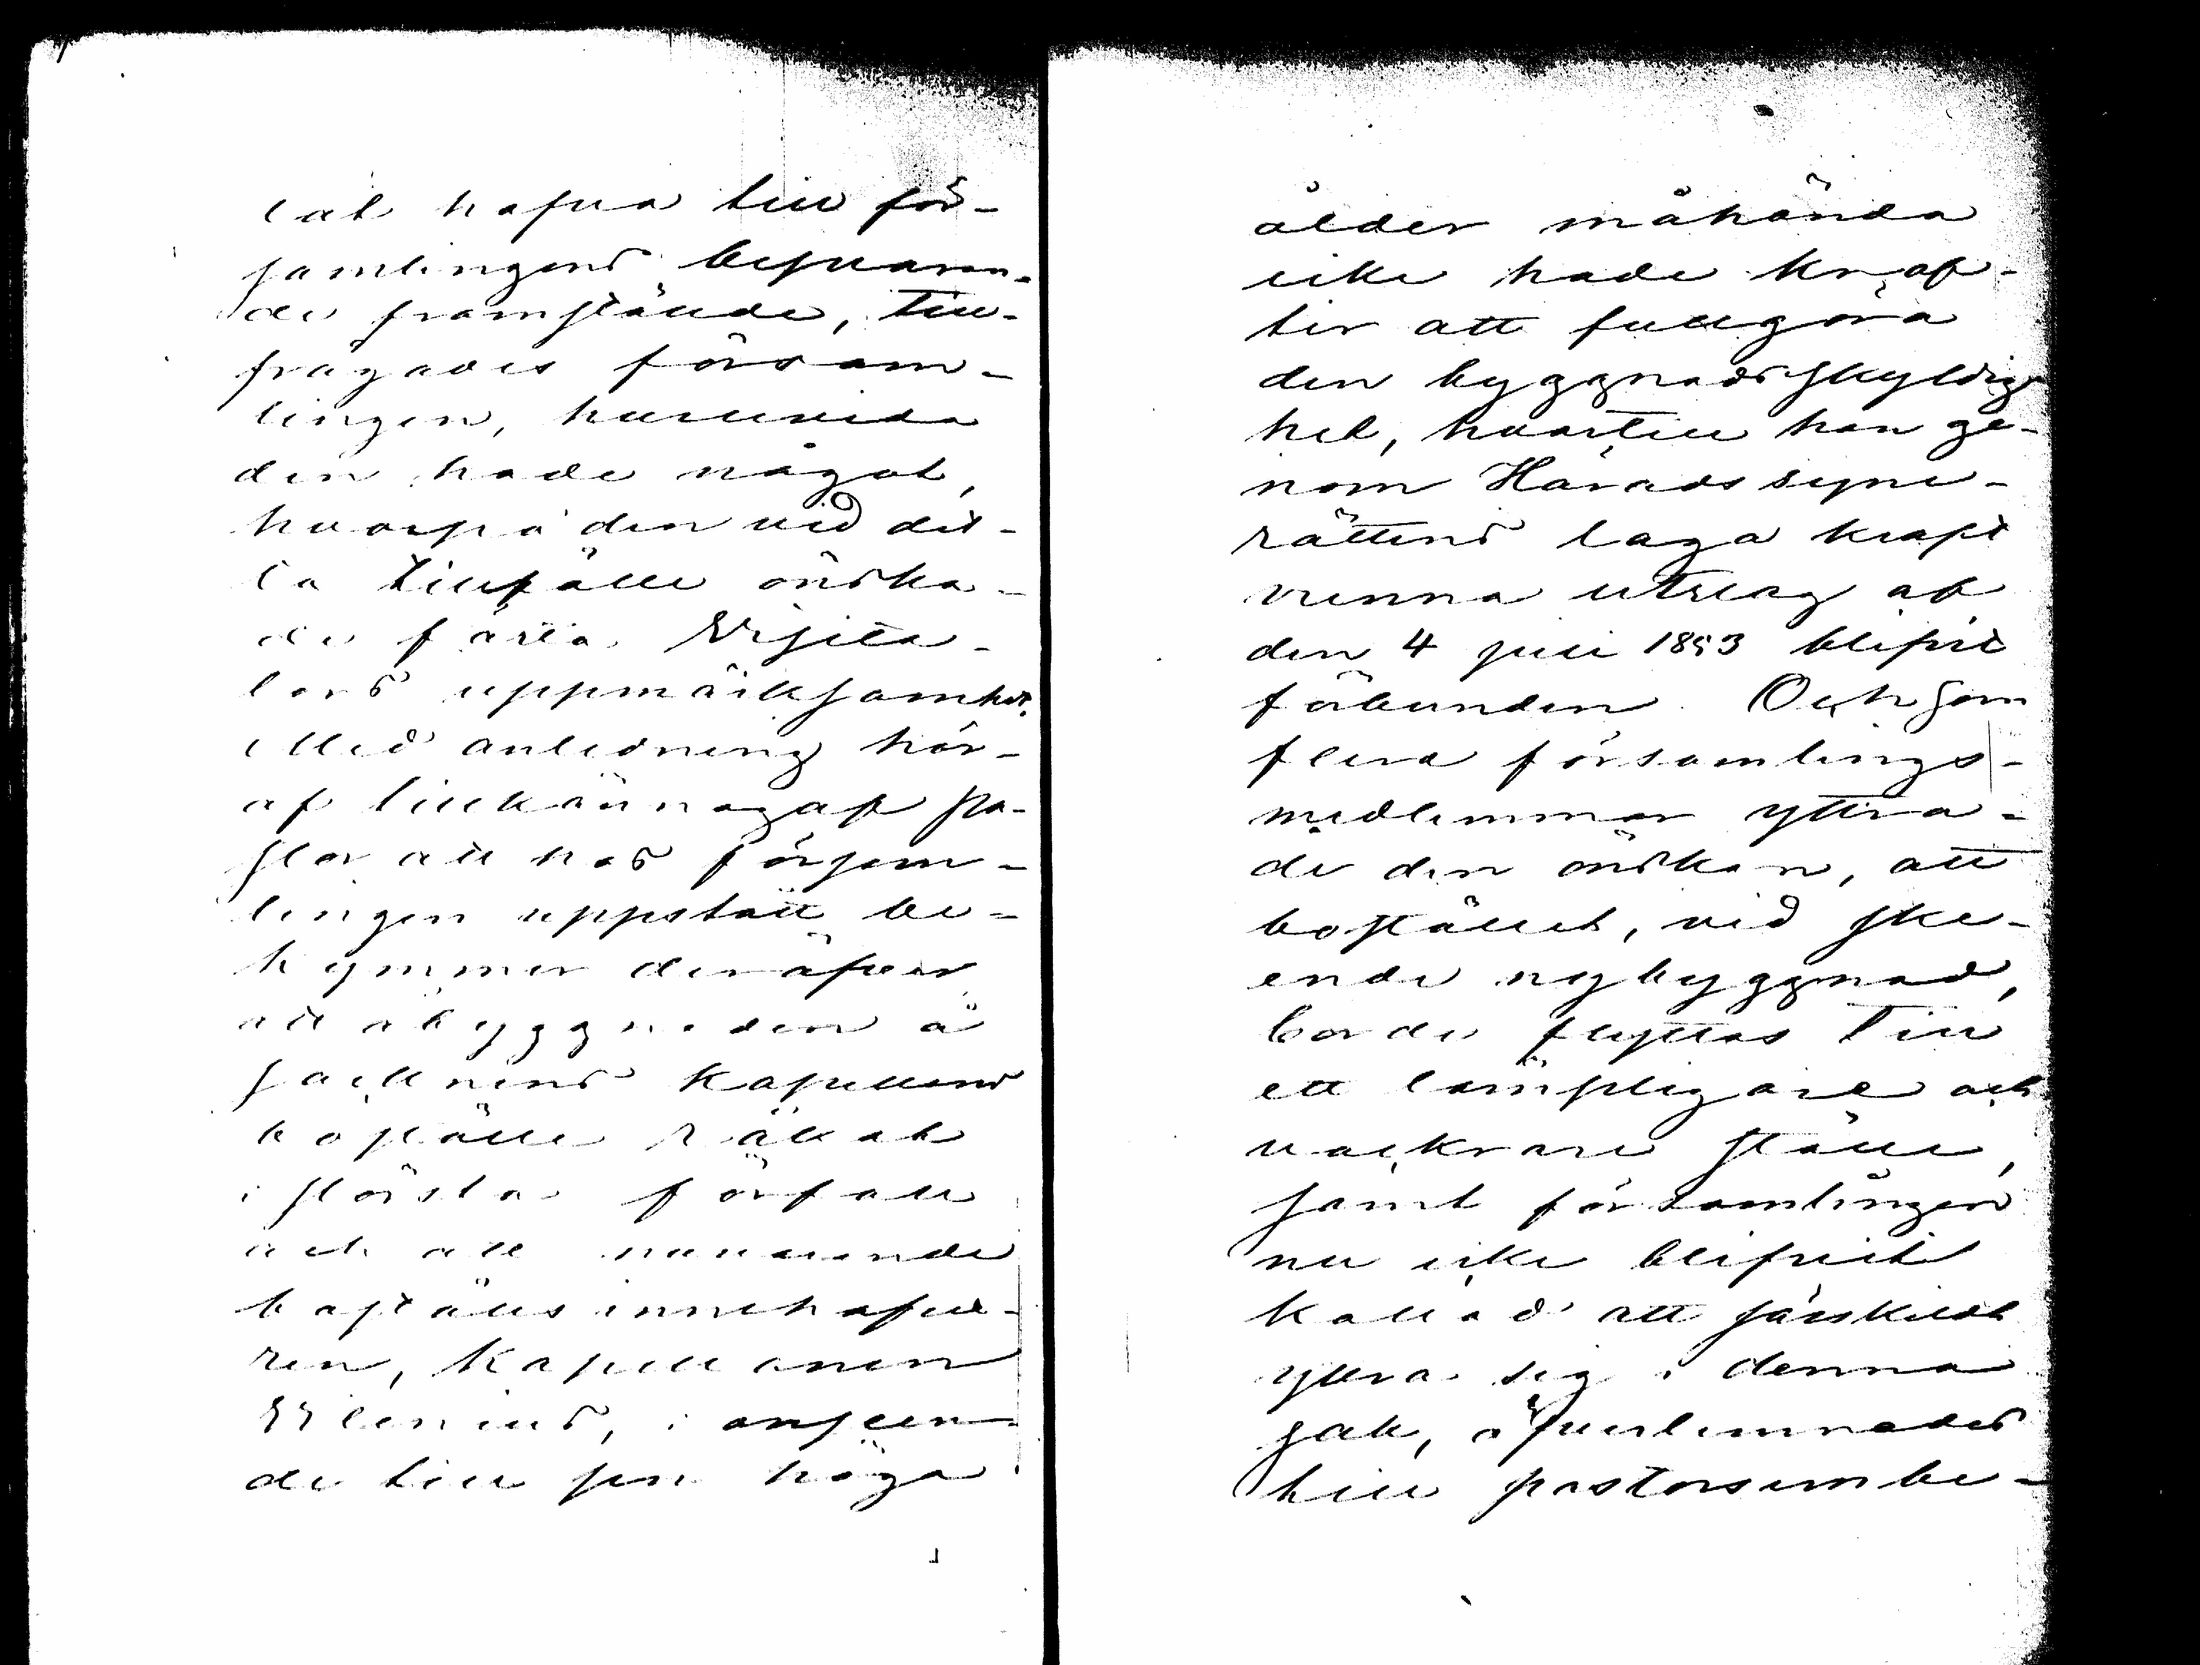 tat hafva till för-
samlingens besvaran-
de framstälde, till-
frågades försam-
lingen, huruvida
den hade något,
hvarpå den vid det-
ta tillfälle önska-
de fästa Visita-
tors uppmärksamhet.
Med anledning här-
af tillkännagaf pa-
stor att hos försam-
lingen uppstått be-
kymmer deröfver
att åbyggnaden å
Sacknens kapellans
boställe råkat
i största förfall
och att nuvarande
boställsinnehafva-
ren, Kapellanen
Vilenius, i anseen-
de till sin höga
ålder måhända
icke hade kraf-
ter att fullgöra
den byggnadsskyldig
het, hvartill han ge-
nom Häradssyne-
rättens laga kraft
vunna utslag af
den 4 juli 1893 blifvit
förbunden. Och som
flera församlings-
medlemmar yttra-
de den önskan, att
bostället, vid ske-
ende nybyggnad,
borde flyttas till
ett lämpligare och
vackrare ställe,
samt församlingen
nu icke blifvit
kallad att särskildt
yttra sig i denna
sak, öfverlemnades
till pastorsembe-